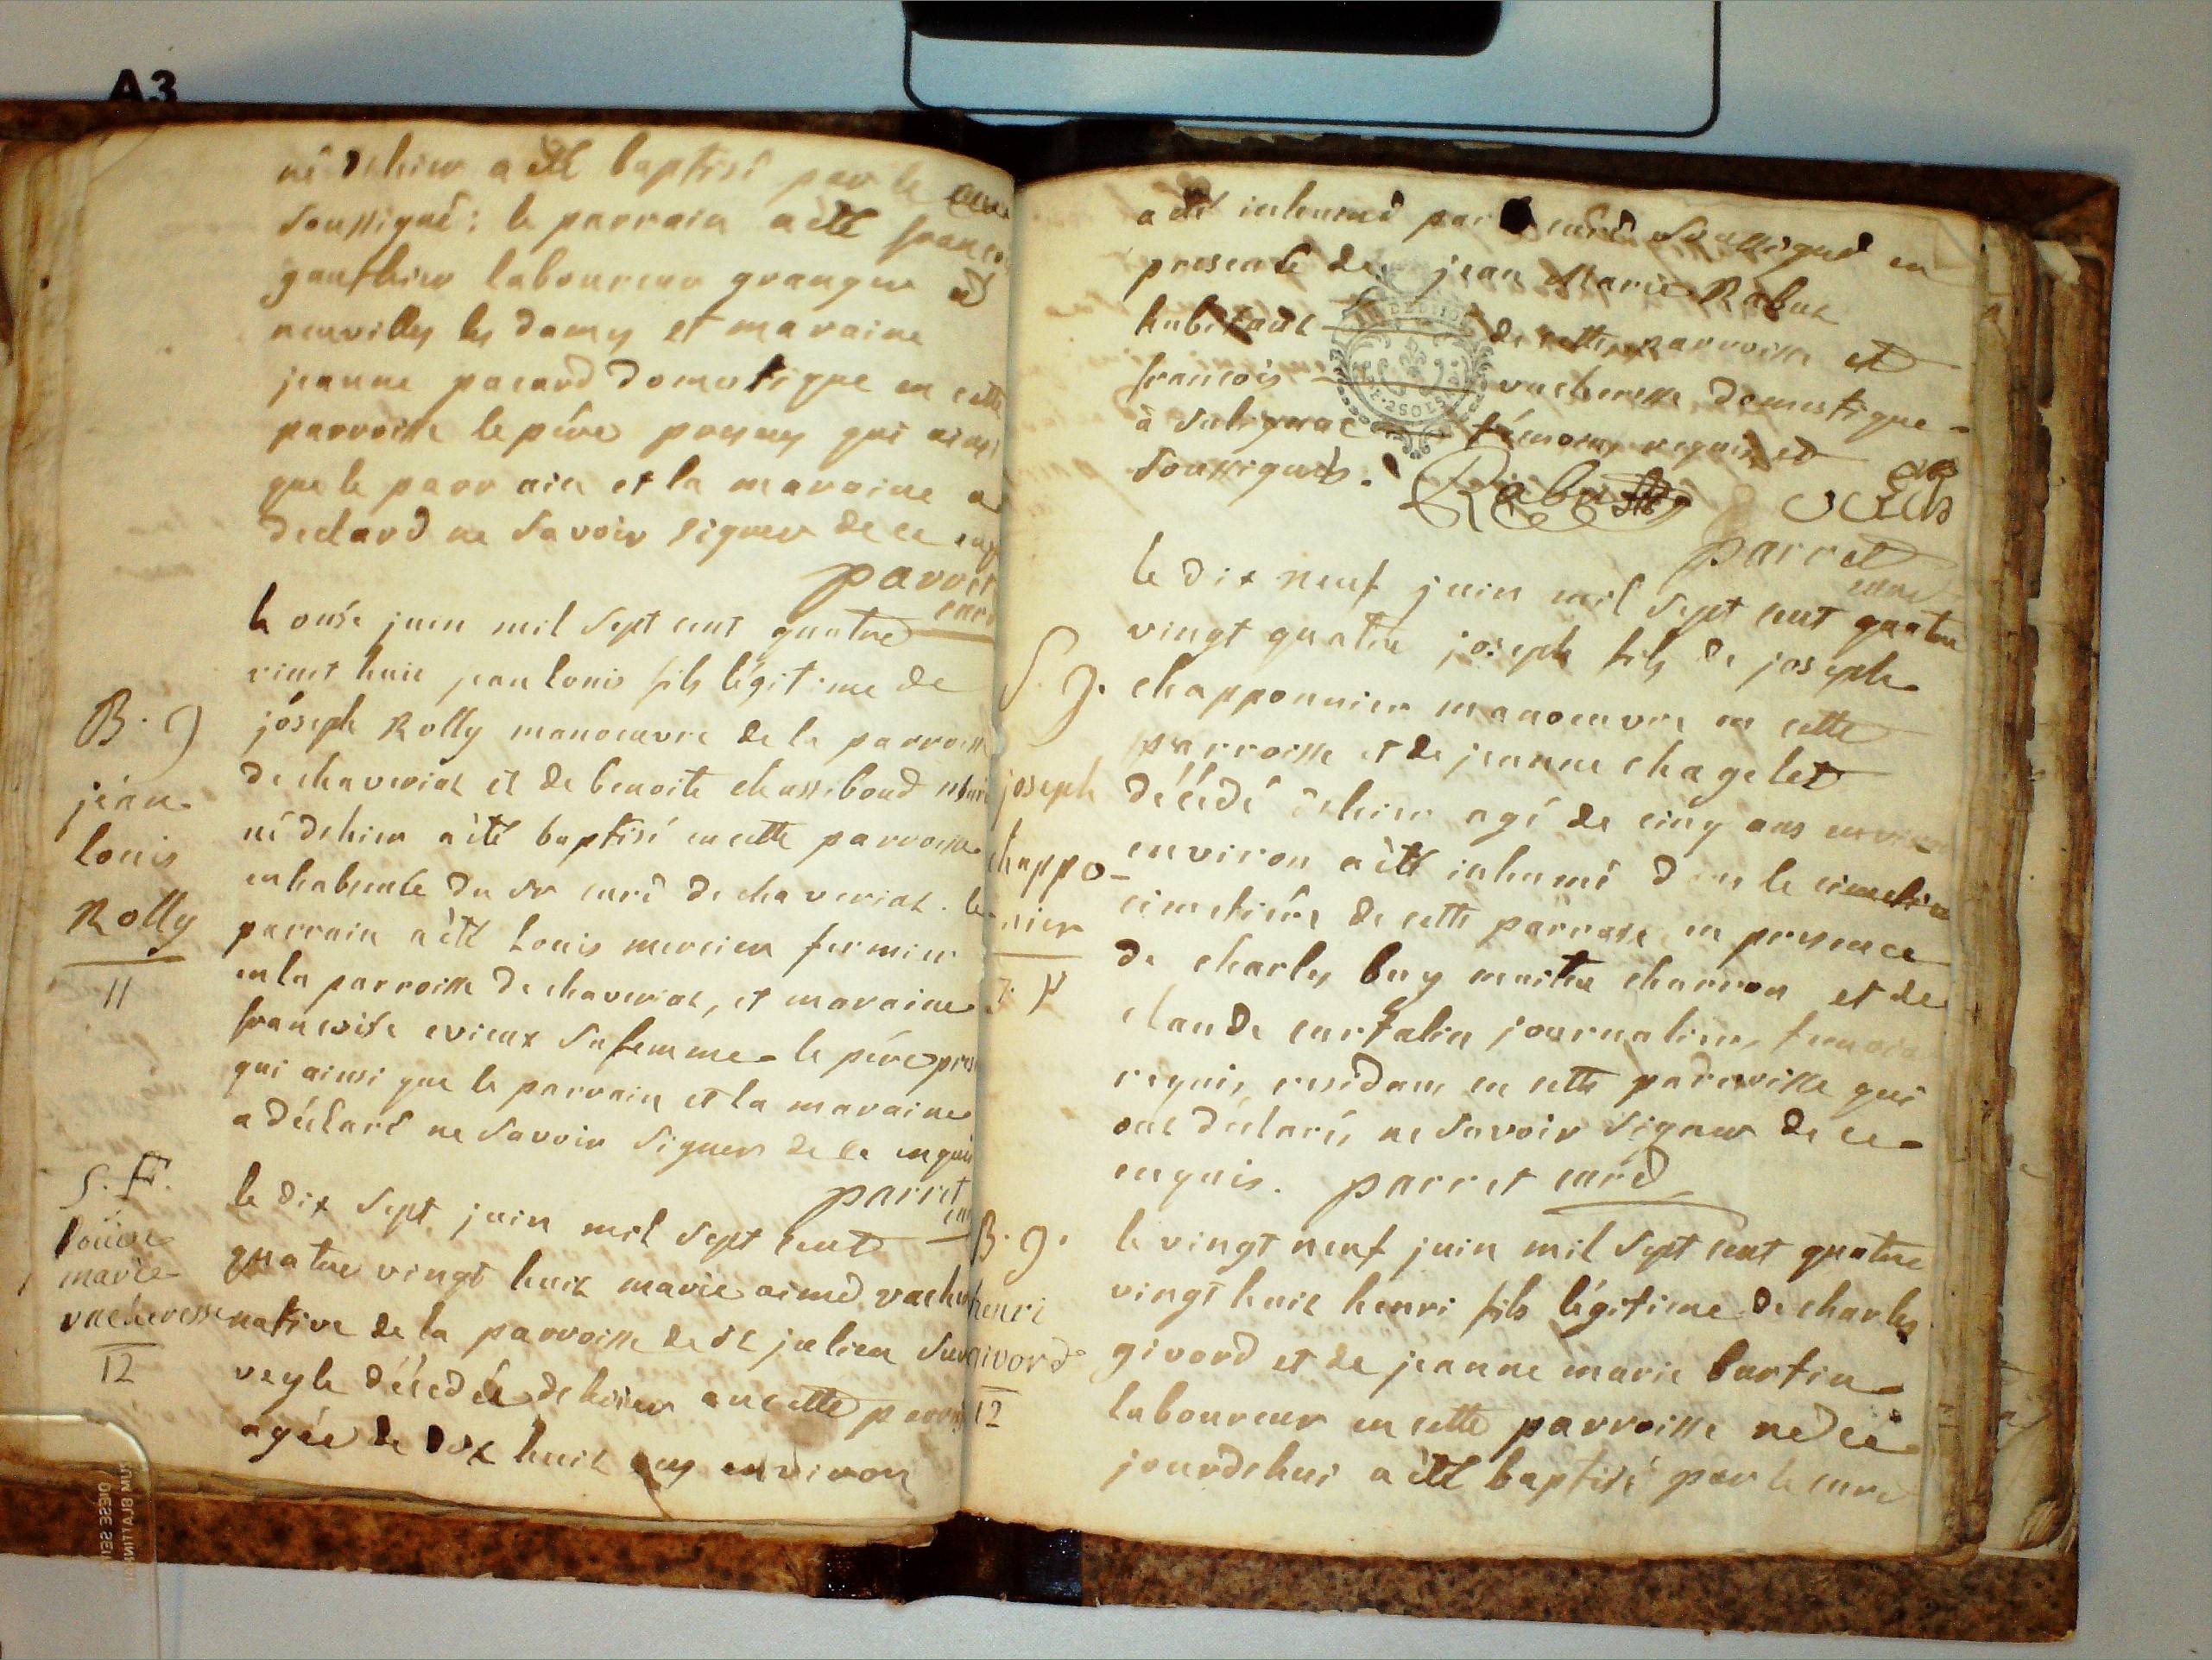 A3
né dehier a été baptisé par le curé
soussigné: le parrain a été françois
gauthier laboureur granger à
neuvilles les damy et maraine
jeanne pacard domestique en cette
parroisse le père presens qui ainsi
que le parrain et la maraine a
declaré ne savoir signer de ce enq
parret
curé
le onse juin mil sept cent quatre
vint huit jean louis fils légitime de
joseph Rolly manoeuvre de la parroisse
de chaveriat et de benoite chassiboud
né dehier a été baptisé en cette parroisse
en habsence du sr curé de chaveriat. le
parrain a été Louis mercier fermier
en la parroisse de chaveriat, et maraine
francoise evieux sa femme le père pres
qui ainsi que le parrain et la maraine
a déclaré ne savoir signer de ce enquis
parret
curé
le dix sept juin mil sept cent
quatre vingt huit marie aimé vacher
native de la parroisse de st julien sur
veyle décedée dehier en cette parroi
agée de dix huit ans environ
B. J
jean
louis
Rolly
11
S. F.
louise
marie
vacheresse
12
a été inhumé par curé soussigné en
presence de jean Marie Rabut
habitant de cette parroisse et
francois vacheresse domestique
à salignac témoins requis et
soussignés. Rabut
parret
curé
le dix neuf juin mil sept cent quatre
vingt quatre joseph fils de joseph
chapponnier manoeuvre en cette
parroisse et de jeanne chagelet
décédé dehier agé de cinq ans
environ a été inhumé dans le
cimetière de cette parroisse en presence
de charles buy maitre charron et de
claude curtalin journalier, temoins
requis, residans en cette parroisse qui
ont déclaré ne savoir signer de ce
enquis. parret curé
le vingt neuf juin mil sept cent quatre
vingt huit henri fils légitime de charles
givord et de jeanne marie burtin
laboureur en cette parroisse né de ce
jourdehui a été baptisé par le curé
S. J.
joseph
chappo-
nier
B. J.
henri
givord
12